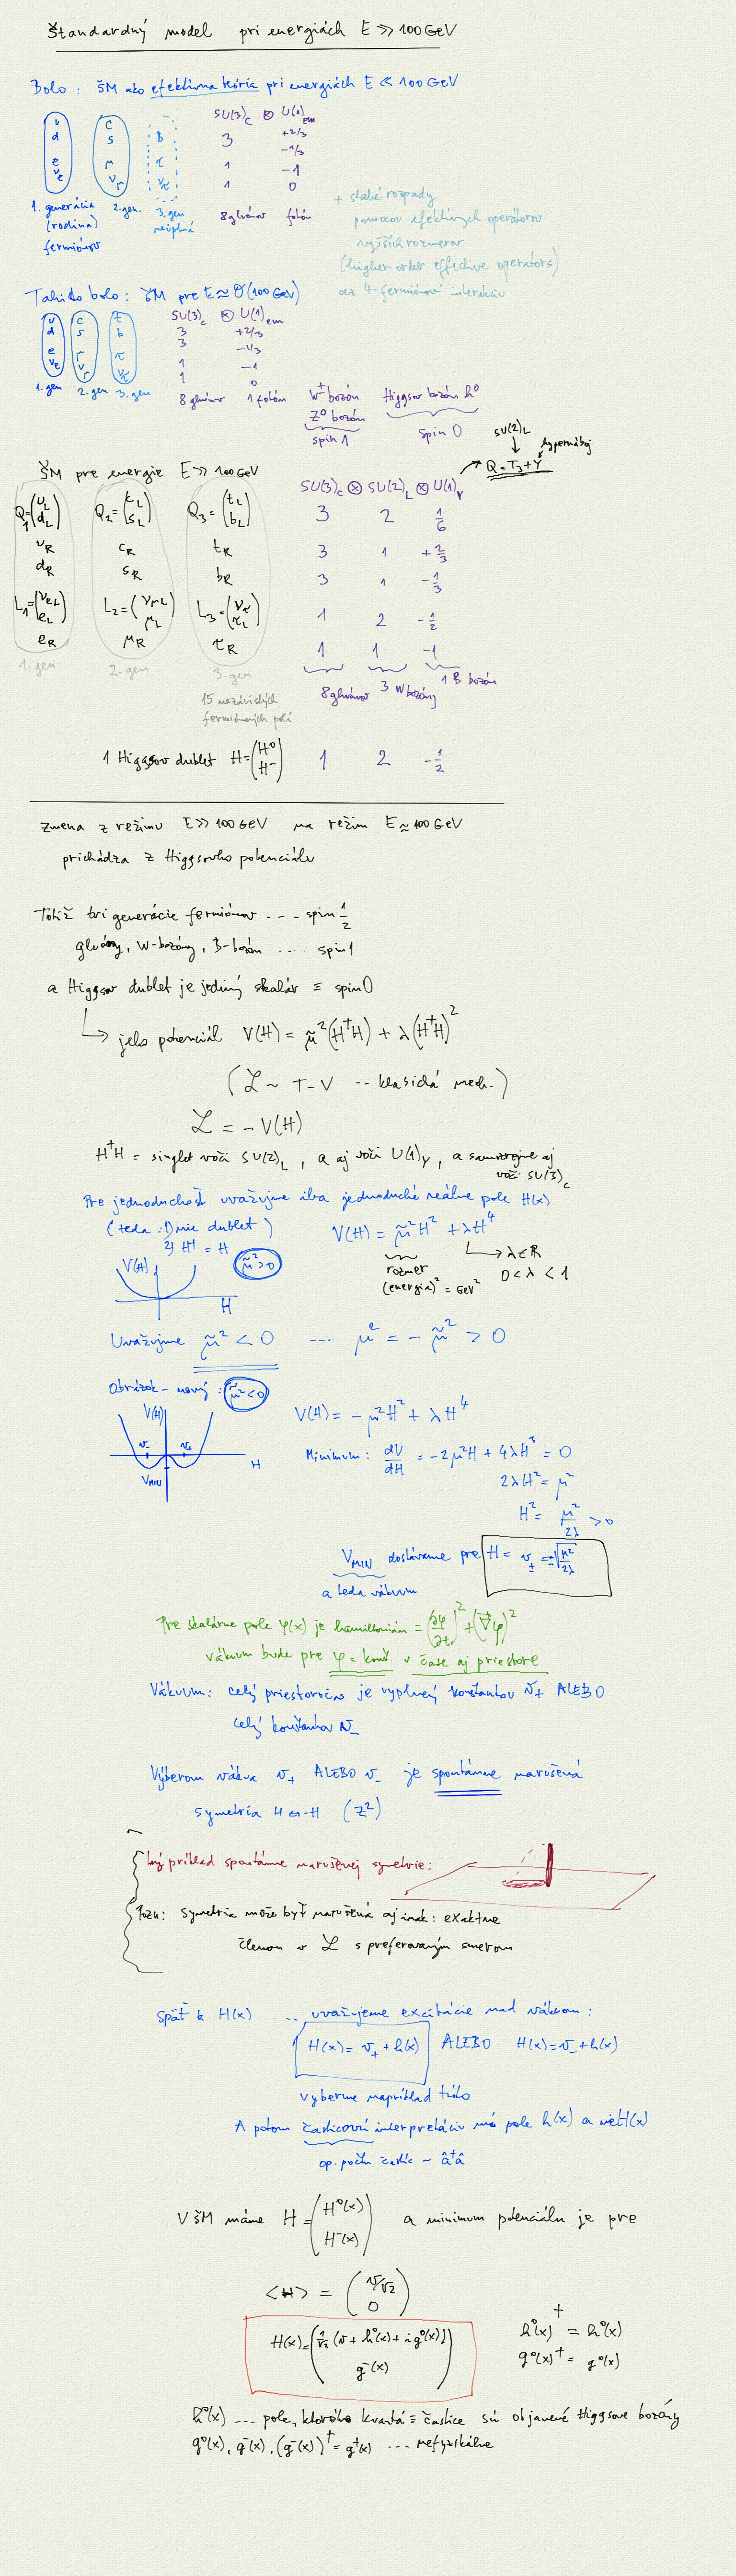 Štandardný model pri energiách E ≫ 100 GeV
Bolo: ŠM ako efektívna teória pri energiách E < 100 GeV
u c SU(3)_c ⊗ U(1)_em
d s b 3 +2/3
-1/3
e μ τ 1 -1
ν_e ν_μ ν_τ 1 0
1. generácia 2. gen. 3. gen 8 gluónov fotón
(rodina) neúplná
fermiónov
+ slabé rozpady
pomocou efektívnych operátorov
vyšších rozmerov
(higher order effective operators)
cez 4-fermiónové interakcie
Takisto bolo: ŠM pre E ≈ O(100 GeV)
u c t SU(3)_c ⊗ U(1)_em
d s b 3 +2/3
3 -1/3
e μ τ 1 -1
ν_e ν_μ ν_τ 1 0
1. gen 2. gen 3. gen 8 gluónov 1 fotón W± bozón Higgsov bozón h⁰
Z⁰ bozón
spin 1 spin 0
SU(2)_L
hypernáboj
Q = T₃ + Y
ŠM pre energie E ≫ 100 GeV
SU(3)_c ⊗ SU(2)_L ⊗ U(1)_Y
Q₁ = (u_L d_L) Q₂ = (c_L s_L) Q₃ = (t_L b_L) 3 2 1/6
u_R c_R t_R 3 1 +2/3
d_R s_R b_R 3 1 -1/3
L₁ = (ν_eL e_L) L₂ = (ν_μL μ_L) L₃ = (ν_τ τ_L) 1 2 -1/2
e_R μ_R τ_R 1 1 -1
1. gen 2. gen 3. gen
8 gluónov 3 W bozóny 1 B bozón
15 nezávislých
fermiónových polí
1 Higgsov dublet H = (H⁰ H⁻) 1 2 -1/2
Zmena z režimu E ≫ 100 GeV na režim E ≈ 100 GeV
prichádza z Higgsovho potenciálu
Totiž tri generácie fermiónov ... spin 1/2
gluóny, W-bozóny, B-bozón .... spin 1
a Higgsov dublet je jediný skalár ≡ spin 0
↳ jeho potenciál V(H) = μ̃²(H†H) + λ(H†H)²
(ℒ ~ T - V -- klasická mech.)
ℒ = -V(H)
H†H = singlet voči SU(2)_L, a aj voči U(1)_Y, a samozrejme aj
voči SU(3)_c
Pre jednoduchosť uvažujme iba jednoduché reálne pole H(x)
(teda 1) nie dublet) V(H) = μ̃²H² + λH⁴
2) H† = H
μ̃² > 0
V(H)
H
rozmer
(energia)² = GeV²
→ λ ∈ R
0 < λ < 1
Uvažujme μ̃² < 0 ... μ² = -μ̃² > 0
Obrázok - nový: μ̃² < 0
V(H)
v₋ v₊
H
V_MIN
V(H) = -μ²H² + λH⁴
Minimum: dV/dH = -2μ²H + 4λH³ = 0
2λH² = μ²
H² = μ²/2λ > 0
V_MIN dostávame pre H = v± = ±√(μ²/2λ)
a teda vákuum
Pre skalárne pole φ(x) je hamiltonián = (∂φ/∂t)² + (∇⃗φ)²
vákuum bude pre φ = konšt v čase aj priestore
Vákuum: celý priestoročas je vyplnený konštantou v₊ ALEBO
celý konštantou v₋
Výberom vákua v₊ ALEBO v₋ je spontánne narušená
symetria H ↔ -H (Z²)
Iný príklad spontánne narušenej symetrie:
Pozn: symetria môže byť narušená aj inak: exaktne
členom v ℒ s preferovaným smerom
Späť k H(x) ... uvažujeme excitácie nad vákuom:
H(x) = v₊ + h(x) ALEBO H(x) = v₋ + h(x)
vyberme napríklad túto
A potom časticovú interpretáciu má pole h(x) a nie H(x)
op. počtu častíc ~ â†â
V ŠM máme H = (H⁰(x) H⁻(x)) a minimum potenciálu je pre
<H> = (v/√2 0)
H(x) = (1/√2 (v + h⁰(x) + i g⁰(x)) g⁻(x))
h⁰(x)† = h⁰(x)
g⁰(x)† = g⁰(x)
h⁰(x) ... pole, ktorého kvantá ≡ častice sú objavené Higgsove bozóny
g⁰(x), g⁻(x), (g⁻(x))† = g⁺(x) ... nefyzikálne